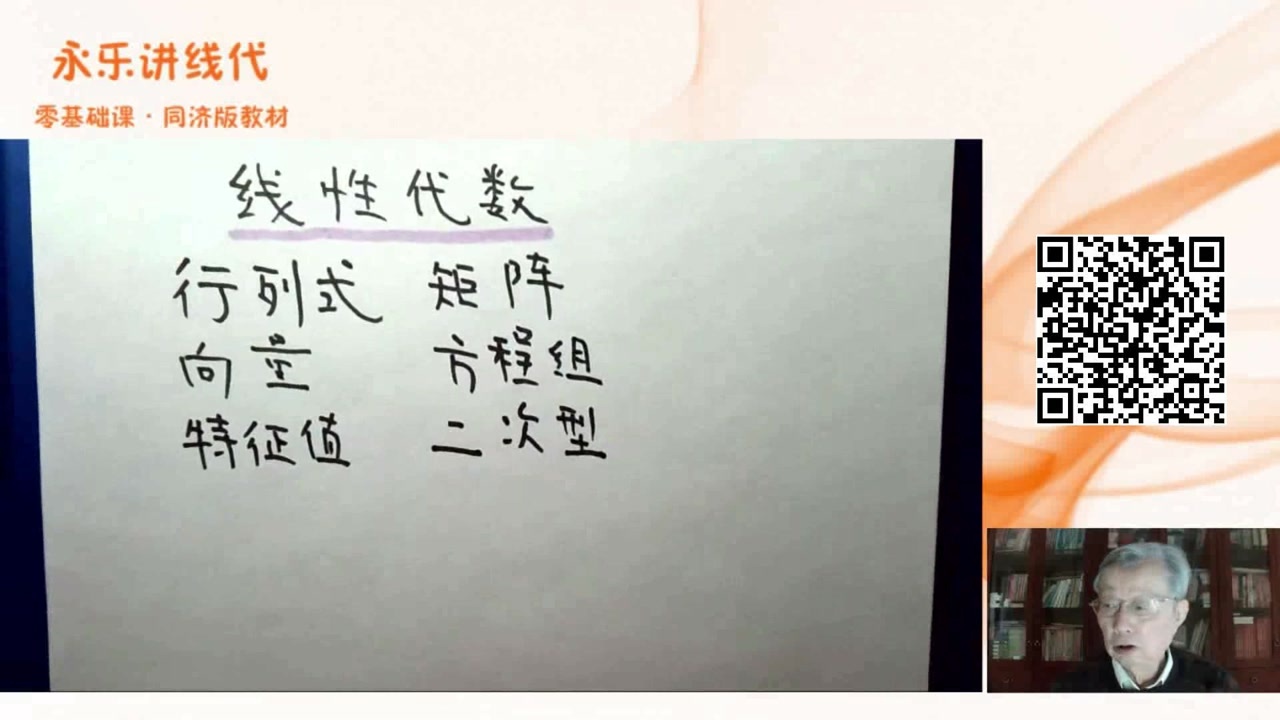 永乐讲线代
零基础课·同济版教材
线性代数
行列式 矩阵
向量 方程组
特征值 二次型